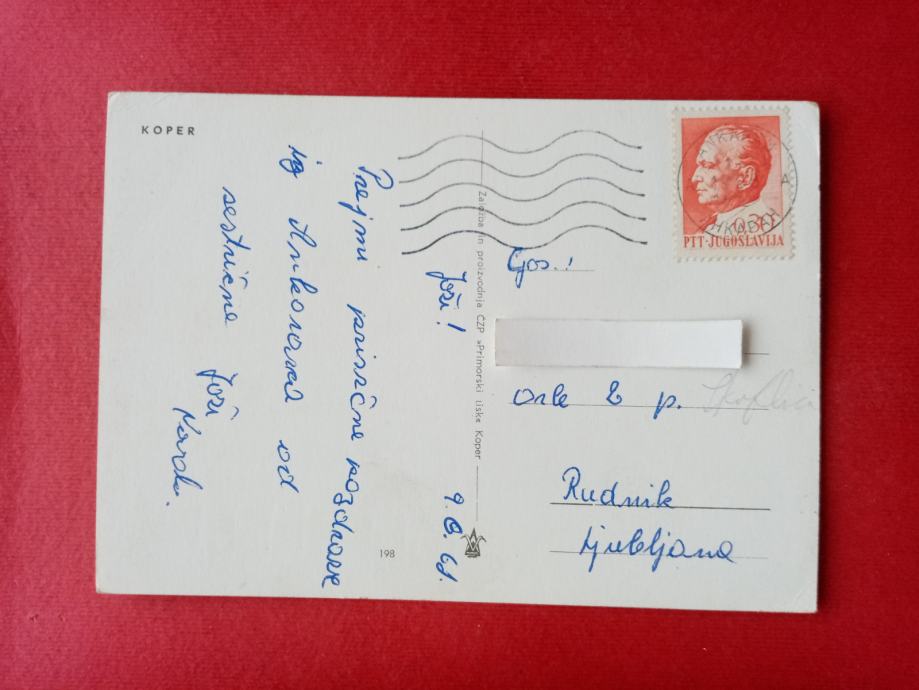 KOPER
Joži!
Prejmi prisrčne pozdrave
iz Ankarana od
sestrične Joži
9. 8. 68.
Založba in proizvodnja ČZP »Primorski tisk« Koper
198
0.30
PTT-JUGOSLAVIJA
Gos.!
Orle 2 p.
Rudnik
Ljubljana